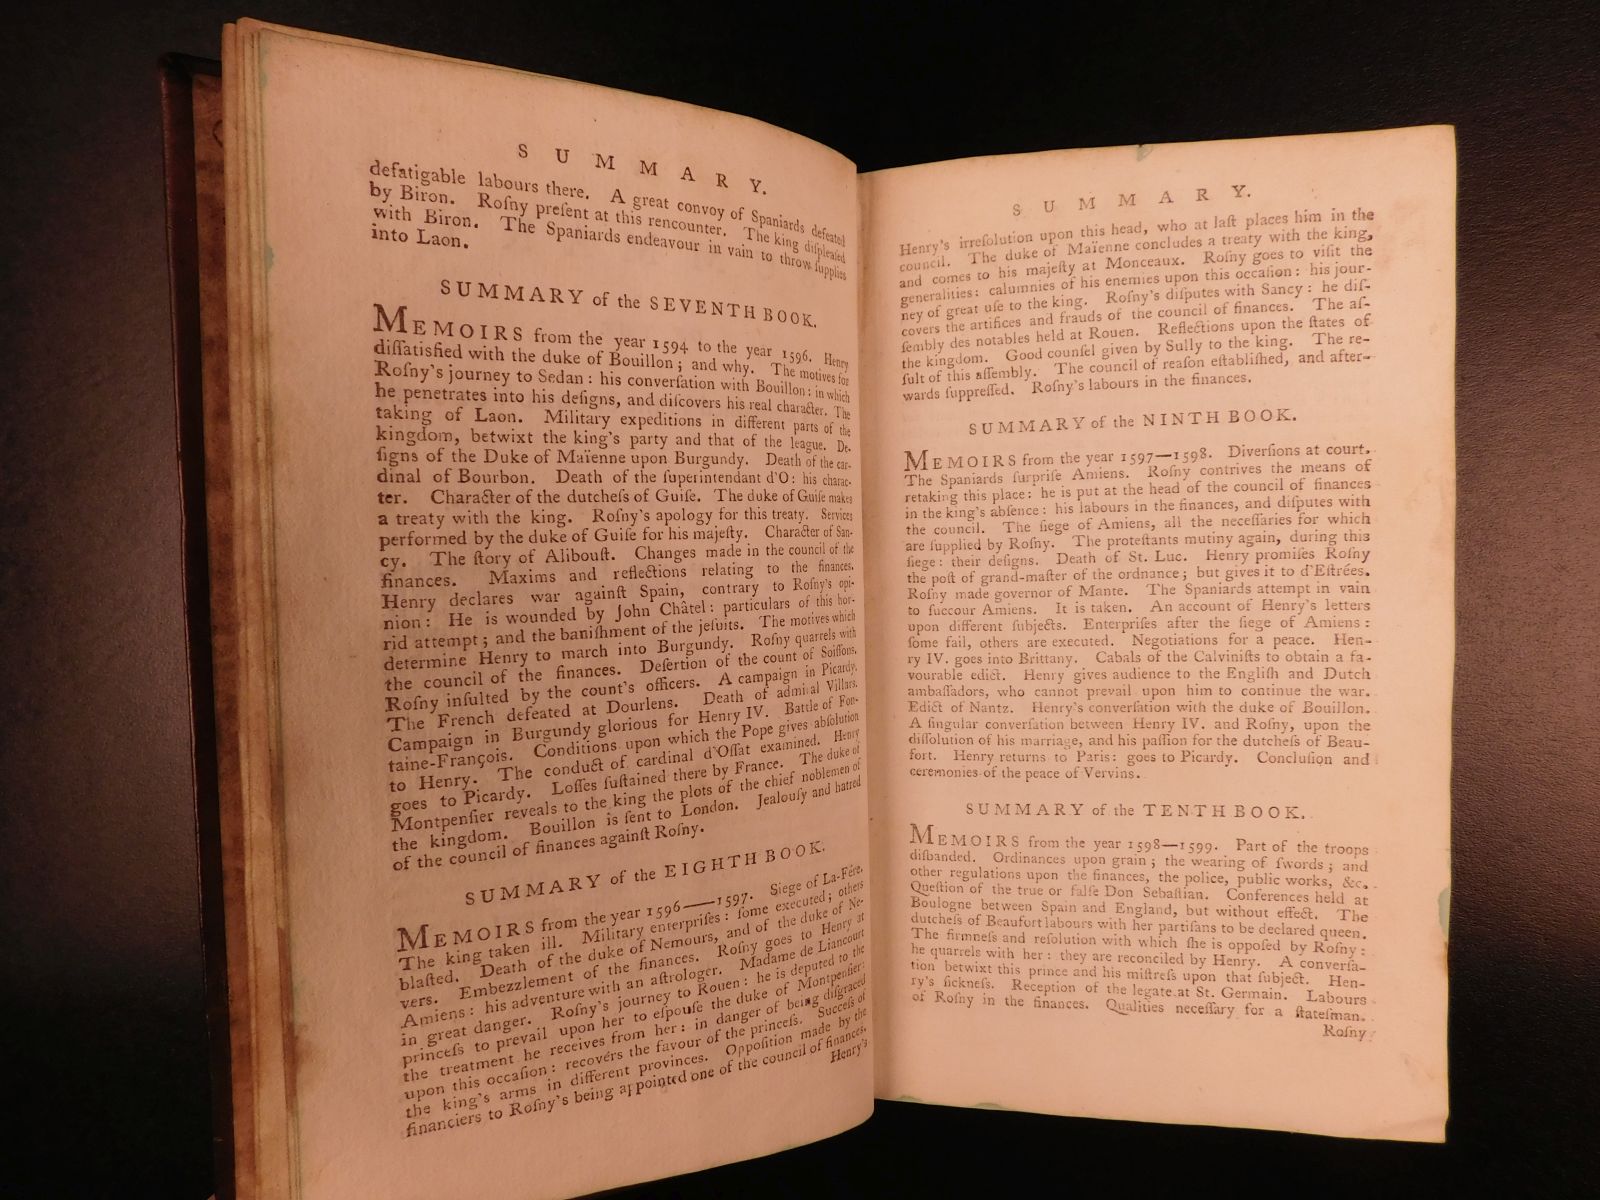 SUMMARY.
defatigable labours there. A great convoy of Spaniards defeated
by Biron. Roſny preſent at this rencounter. The king diſpleaſed
with Biron. The Spaniards endeavour in vain to throw ſupplies
into Laon.
SUMMARY of the SEVENTH BOOK.
MEMOIRS from the year 1594 to the year 1596. Henry
diſſatisfied with the duke of Bouillon; and why. The motives for
Roſny's journey to Sedan: his converſation with Bouillon: in which
he penetrates into his deſigns, and diſcovers his real character. The
taking of Laon. Military expeditions in different parts of the
kingdom, betwixt the king's party and that of the league. De-
ſigns of the Duke of Maïenne upon Burgundy. Death of the car-
dinal of Bourbon. Death of the ſuperintendant d'O: his charac-
ter. Character of the dutcheſs of Guiſe. The duke of Guiſe makes
a treaty with the king. Roſny's apology for this treaty. Services
performed by the duke of Guiſe for his majeſty. Character of San-
cy. The ſtory of Alibouſt. Changes made in the council of the
finances. Maxims and reflections relating to the finances.
Henry declares war againſt Spain, contrary to Roſny's opi-
nion: He is wounded by John Châtel: particulars of this hor-
rid attempt; and the baniſhment of the jeſuits. The motives which
determine Henry to march into Burgundy. Roſny quarrels with
the council of the finances. Deſertion of the count of Soiſſons.
Roſny inſulted by the count's officers. A campaign in Picardy.
The French defeated at Dourlens. Death of admiral Villars.
Campaign in Burgundy glorious for Henry IV. Battle of Fon-
taine-François. Conditions upon which the Pope gives abſolution
to Henry. The conduct of cardinal d'Oſſat examined. Henry
goes to Picardy. Loſſes ſuſtained there by France. The duke of
Montpenſier reveals to the king the plots of the chief noblemen of
the kingdom. Bouillon is ſent to London. Jealouſy and hatred
of the council of finances againſt Roſny.
SUMMARY of the EIGHTH BOOK.
MEMOIRS from the year 1596—1597. Siege of La-Fére.
The king taken ill. Military enterpriſes: ſome executed; others
blaſted. Death of the duke of Nemours, and of the duke of Ne-
vers. Embezzlement of the finances. Roſny goes to Henry at
Amiens: his adventure with an aſtrologer. Madame de Liancourt
in great danger. Roſny's journey to Rouen: he is deputed to the
princeſs to prevail upon her to eſpouſe the duke of Montpenſier:
the treatment he receives from her: in danger of being diſgraced
upon this occaſion: recovers the favour of the princeſs. Succeſs of
the king's arms in different provinces. Oppoſition made by the
financiers to Roſny's being appointed one of the council of finances.
Henry's
SUMMARY.
Henry's irreſolution upon this head, who at laſt places him in the
council. The duke of Maïenne concludes a treaty with the king,
and comes to his majeſty at Monceaux. Roſny goes to viſit the
generalities: calumnies of his enemies upon this occaſion: his jour-
ney of great uſe to the king. Roſny's diſputes with Sancy: he diſ-
covers the artifices and frauds of the council of finances. The aſ-
ſembly des notables held at Rouen. Reflections upon the ſtates of
the kingdom. Good counſel given by Sully to the king. The re-
ſult of this aſſembly. The council of reaſon eſtabliſhed, and after-
wards ſuppreſſed. Roſny's labours in the finances.
SUMMARY of the NINTH BOOK.
MEMOIRS from the year 1597—1598. Diverſions at court.
The Spaniards ſurpriſe Amiens. Roſny contrives the means of
retaking this place: he is put at the head of the council of finances
in the king's abſence: his labours in the finances, and diſputes with
the council. The ſiege of Amiens, all the neceſſaries for which
are ſupplied by Roſny. The proteſtants mutiny again, during this
ſiege: their deſigns. Death of St. Luc. Henry promiſes Roſny
the poſt of grand-maſter of the ordnance; but gives it to d'Eſtrées.
Roſny made governor of Mante. The Spaniards attempt in vain
to ſuccour Amiens. It is taken. An account of Henry's letters
upon different ſubjects. Enterpriſes after the ſiege of Amiens:
ſome fail, others are executed. Negotiations for a peace. Hen-
ry IV. goes into Brittany. Cabals of the Calviniſts to obtain a fa-
vourable edict. Henry gives audience to the Engliſh and Dutch
ambaſſadors, who cannot prevail upon him to continue the war.
Edict of Nantz. Henry's converſation with the duke of Bouillon.
A ſingular converſation between Henry IV. and Roſny, upon the
diſſolution of his marriage, and his paſſion for the dutcheſs of Beau-
fort. Henry returns to Paris: goes to Picardy. Concluſion and
ceremonies of the peace of Vervins.
SUMMARY of the TENTH BOOK.
MEMOIRS from the year 1598—1599. Part of the troops
diſbanded. Ordinances upon grain; the wearing of ſwords; and
other regulations upon the finances, the police, public works, &c.
Queſtion of the true or falſe Don Sebaſtian. Conferences held at
Boulogne between Spain and England, but without effect. The
dutcheſs of Beaufort labours with her partiſans to be declared queen.
The firmneſs and reſolution with which ſhe is oppoſed by Roſny:
he quarrels with her: they are reconciled by Henry. A converſa-
tion betwixt this prince and his miſtreſs upon that ſubject. Hen-
ry's ſickneſs. Reception of the legate at St. Germain. Labours
of Roſny in the finances. Qualities neceſſary for a ſtateſman.
Roſny